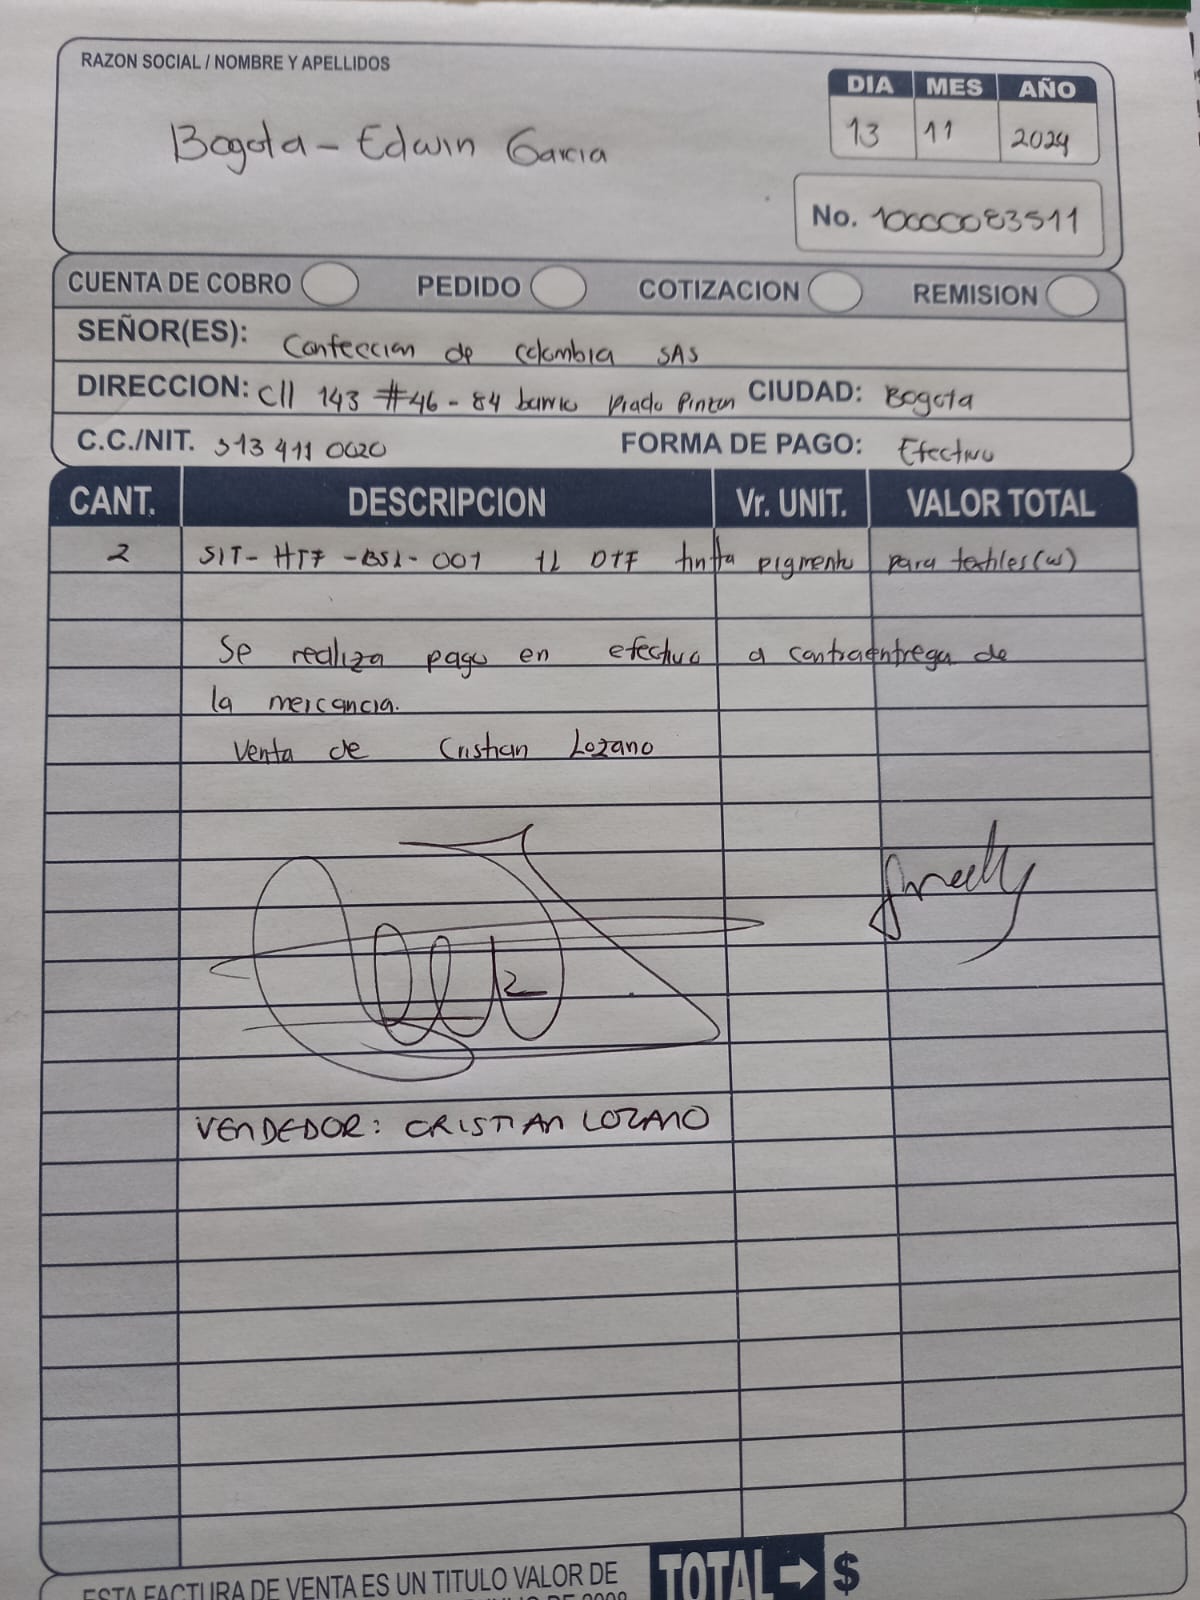 RAZON SOCIAL / NOMBRE Y APELLIDOS
DIA MES AÑO
Bogota - Edwin Garcia
13 11 2024
No. 10000083511
CUENTA DE COBRO PEDIDO COTIZACION REMISION
SEÑOR(ES): Confeccion de Colombia SAS
DIRECCION: Cll 143 #46-84 barrio Prado Pinzon CIUDAD: Bogota
C.C./NIT. 313 411 0020 FORMA DE PAGO: Efectivo
CANT. DESCRIPCION Vr. UNIT. VALOR TOTAL
2 SIT-HT7-BS1-001 1L DTF tinta pigmento para textiles(w)
Se realiza pago en efectivo a contraentrega de
la mercancia.
Venta de Cristian Lozano
VENDEDOR: CRISTIAN LOZANO
ESTA FACTURA DE VENTA ES UN TITULO VALOR DE
TOTAL → $